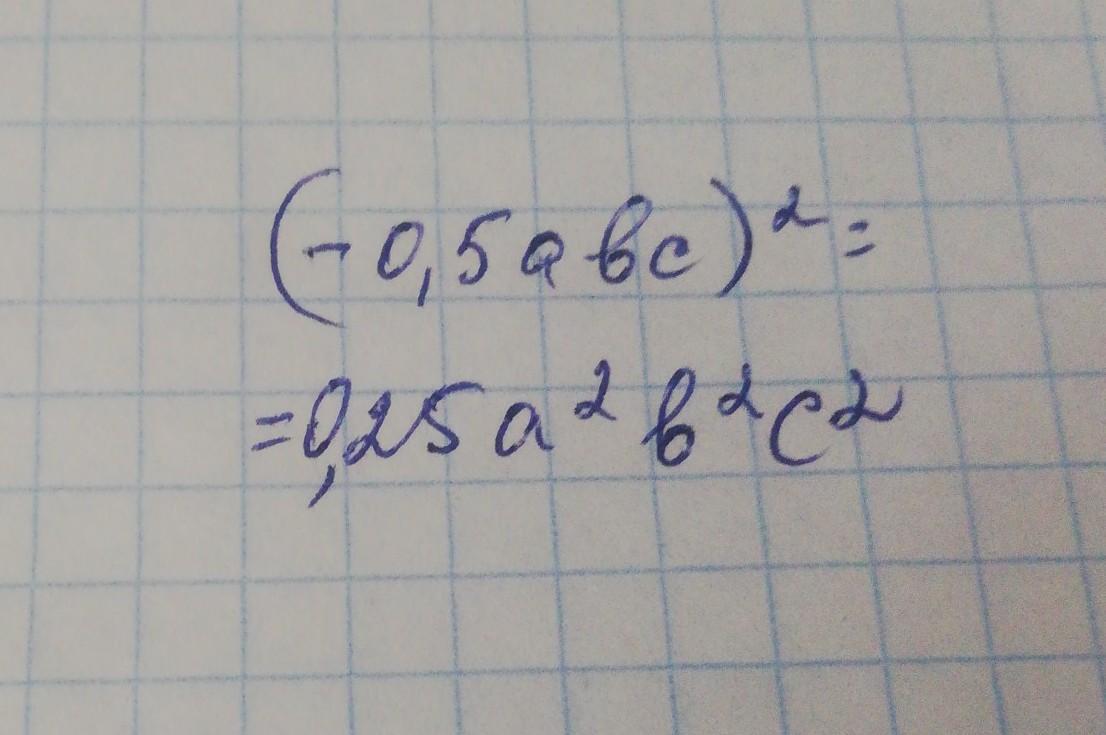 (-0,5abc)²=
=0,25a²b²c²